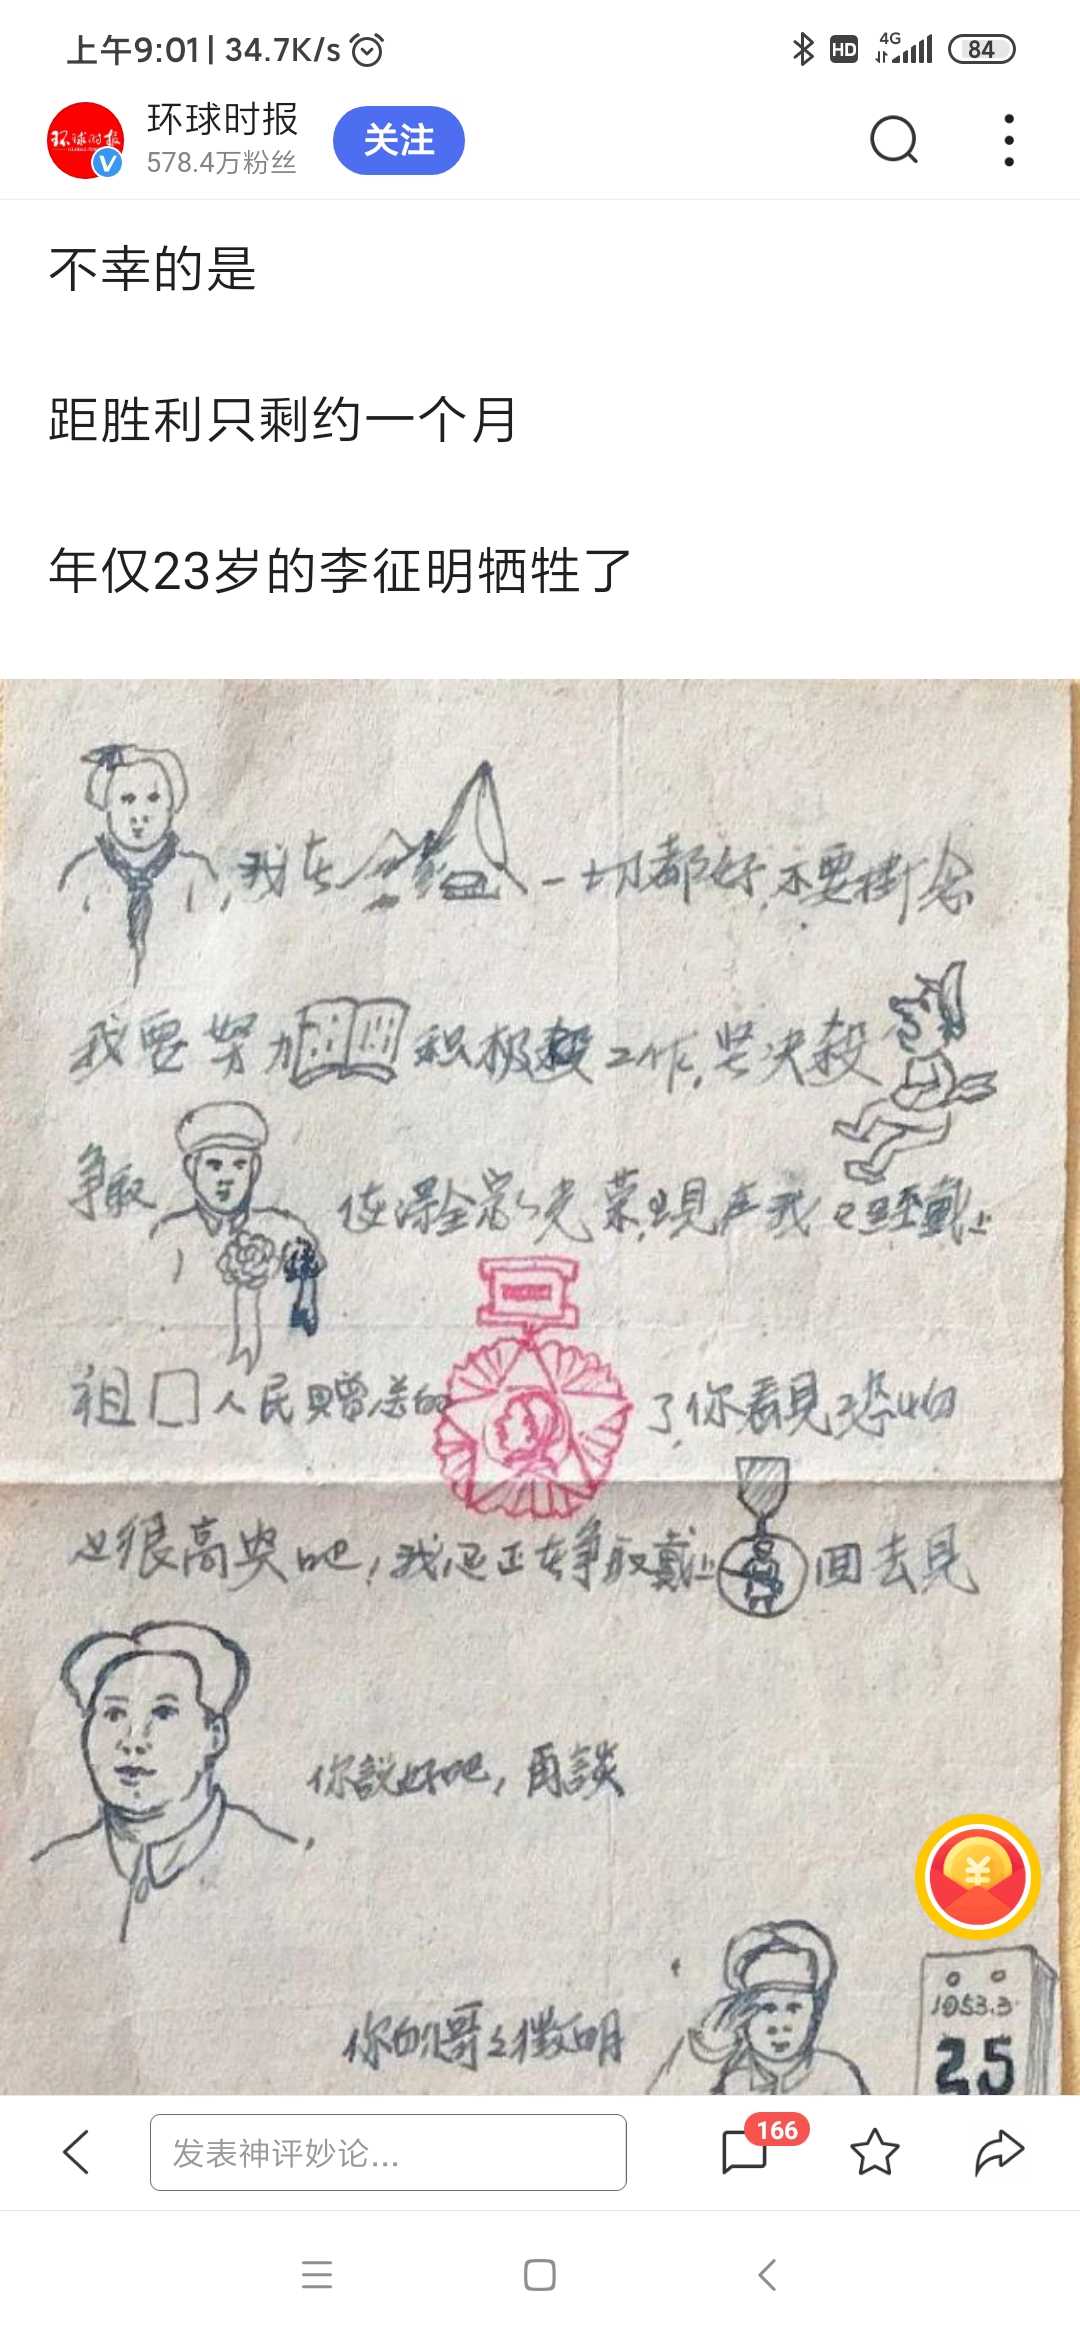 上午9:01 | 34.7K/s
HD 4G 84
环球时报
环球时报
578.4万粉丝
关注
不幸的是
距胜利只剩约一个月
年仅23岁的李征明牺牲了
,我在 一切都好,不要掛念
我要努力 积极 工作,坚决殺
争取 光荣,現在我已经戴上
祖 人民贈送的 了,你看見了恐怕
也很高兴吧!我还正在争取戴上 回去見
,你說好吧,再談
你的哥哥徵明
1953.3
25
发表神评妙论...
166